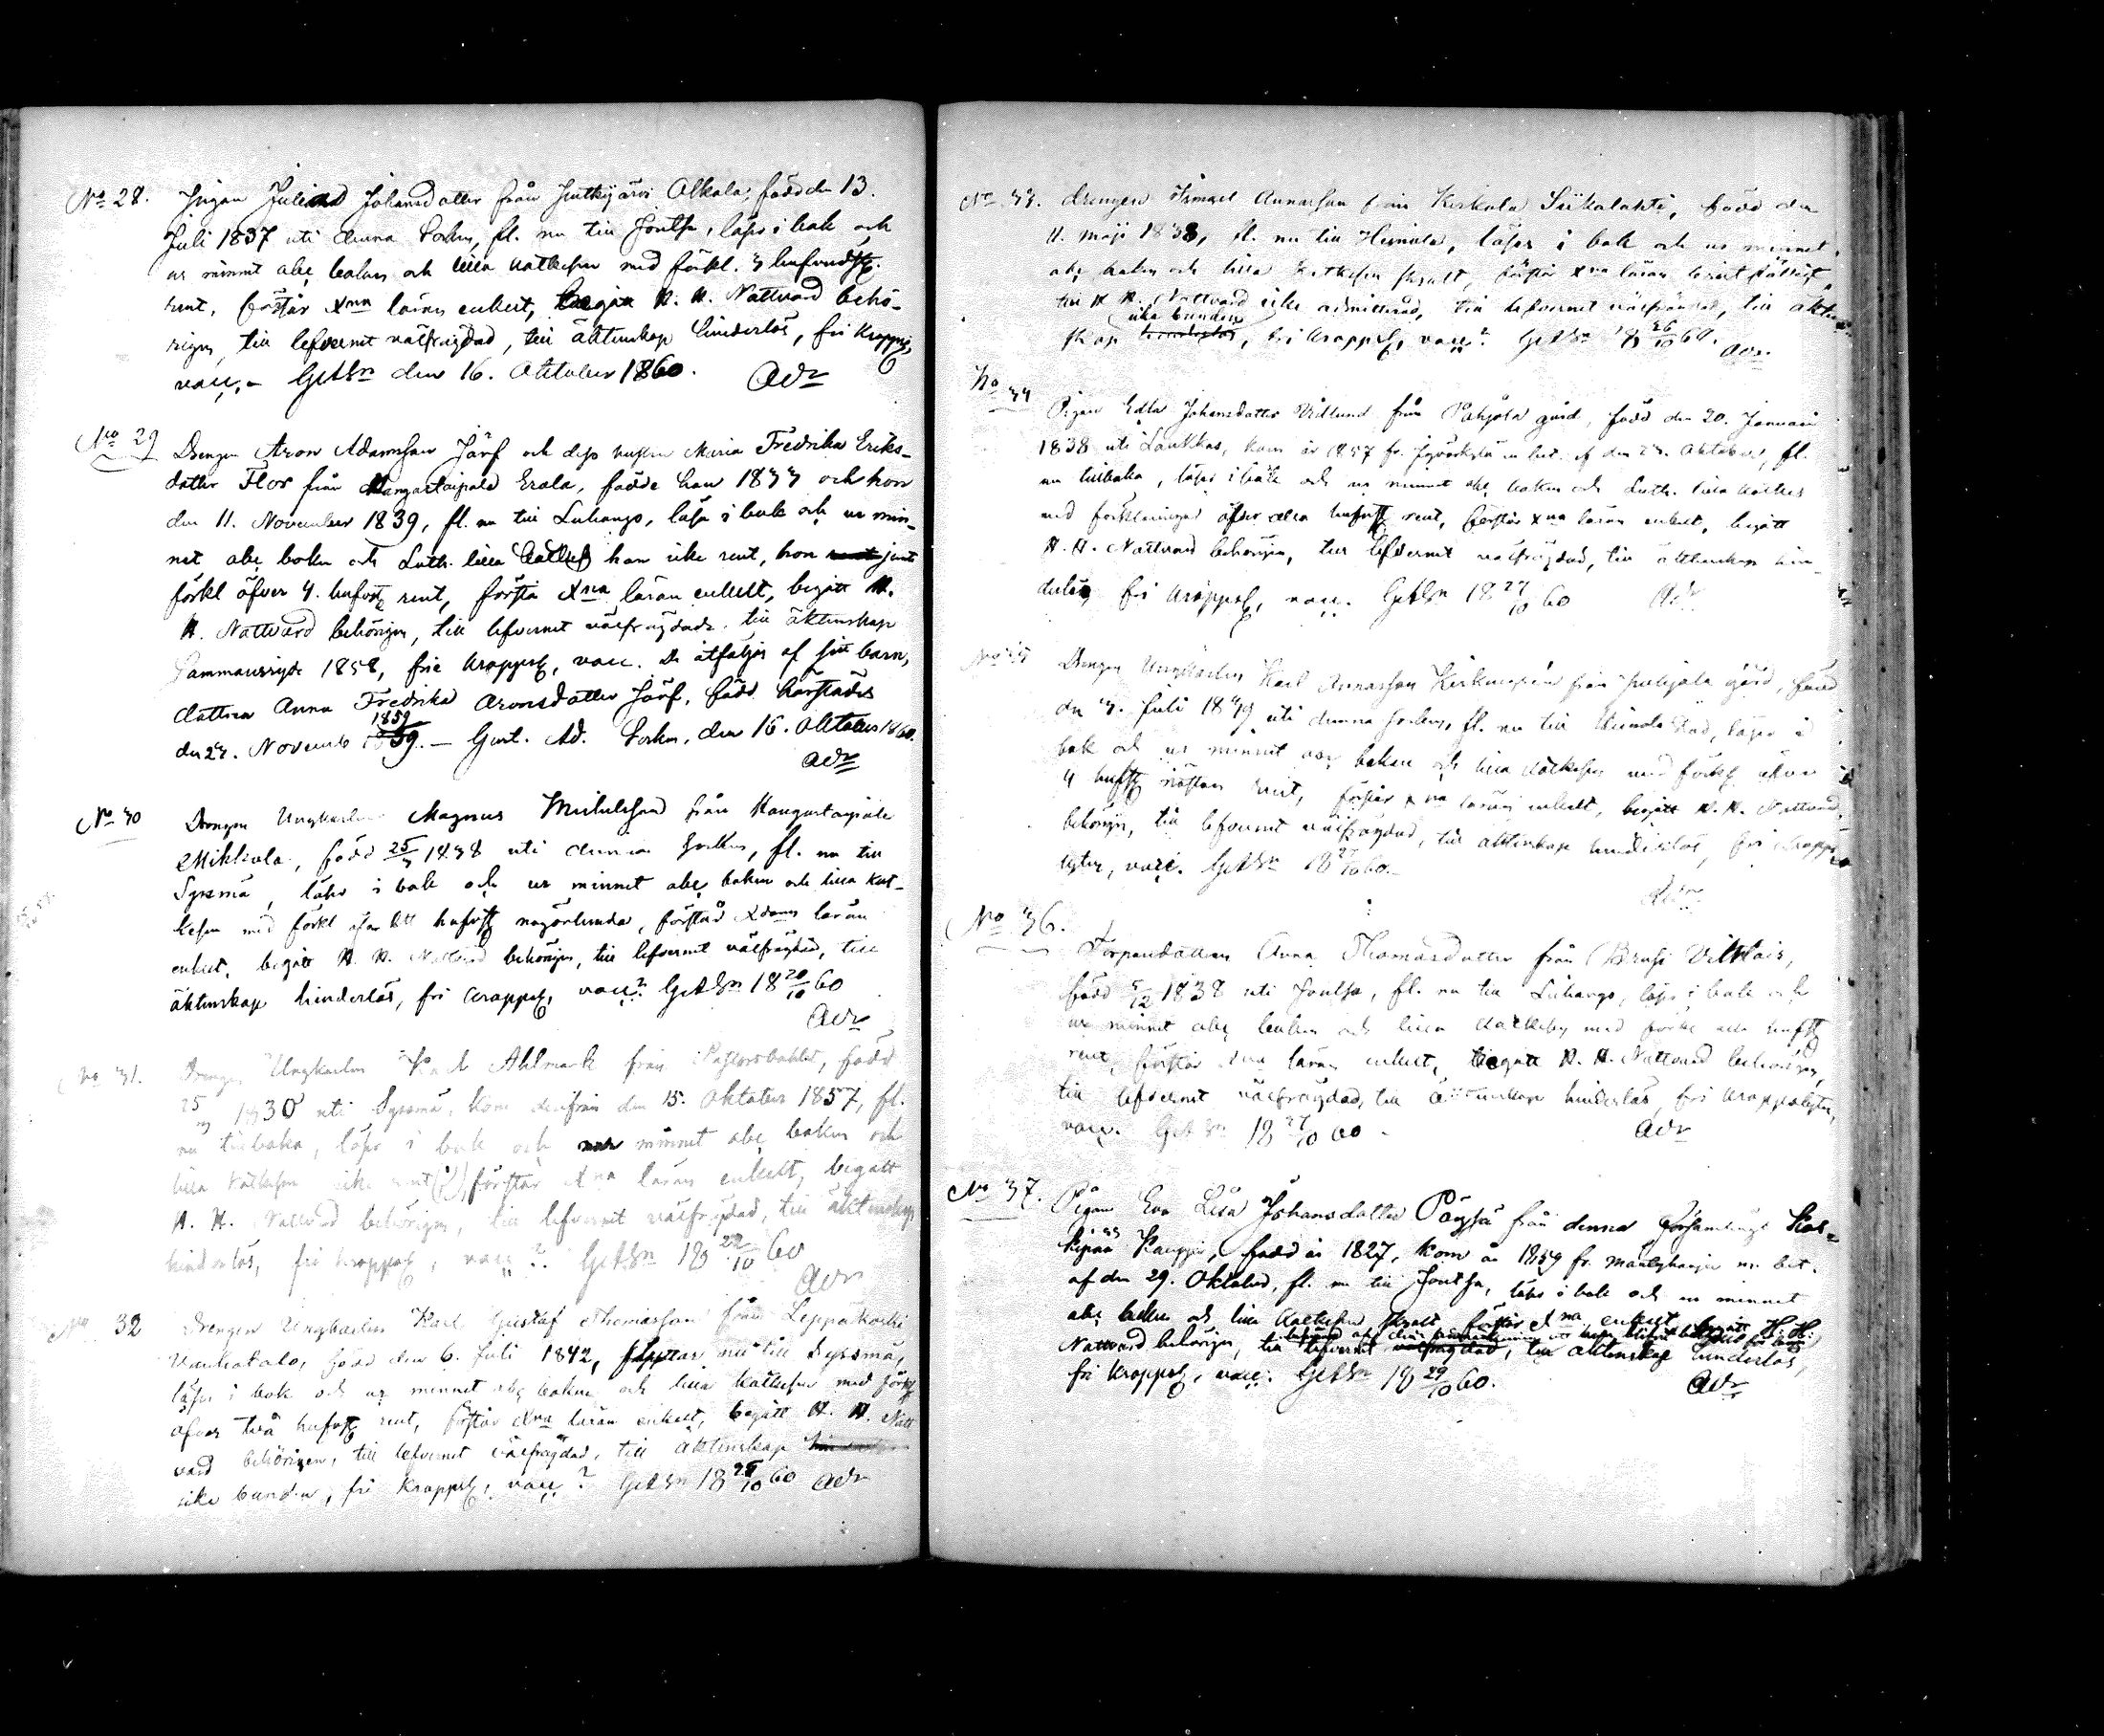 No 28. Pigan Juliana Johansdotter från Jutkijärvi Alkola, född den 13.
Juli 1837 uti denna Socken, fl. nu till Joutsa, läser i bok och
ur minnet abc boken och lilla katkesen med förkl. 3 hufvudst.
rent, förstår Xna läran enkelt, begått H. H. Nattvard behö-
rigen, till lefvernet välfrägdad, till äktenskap hinderlös, fri kropps,
vacc. – GstAdSn den 16. Oktober 1860. Adr
No 29 Drengen Aron Adamsson Järf och dess hustru Maria Fredrika Eriks-
dotter Flor från Kangastaipale Erola, födde han 1833 och hon
den 11. November 1839, fl. nu till Luhango, läsa i bok och ur min-
net abc boken och Luth. lilla Catkes han icke rent, hon rent jemte
förkl öfver 4. hufvst rent, förstå Xna läran enkelt, begått H.
H. Nattvard behörigen, till lefvernet välfrägdade, till äktenskap
Sammanvigde 1858, frie kroppsl, vacc. De åtföljes af sitt barn,
dottren Anna Fredrika Aronsdotter Järf, född härstädes
den 23. Novemb 1859 1839. – Gust. Ad. Socken, den 16. Oktober 1860.
Adr
No 30 Drengen Ungkarlen Magnus Michelsson från Kangastaipale
Mikkola, född 25/3 1838 uti denna Socken, fl. nu till
Sysmä, läser i bok och ur minnet abc boken och lilla kat-
kesen med förkl öfver ett hufvst någorlunda, förstår Xdoms läran
enkelt, begått H. H. Nattvard behörigen, till lefvernet välfrägdad, till
äktenskap hinderlös, fri kroppsl, vacc? GstAdSn 18 20/10 60
Adr
No 31. Drengen Ungkarlen Ahlmark från Pastorsbohlet, född
25 1830 uti Sysmä, kom derifrån den 15. Oktober 1857, fl.
nu tillbaka, läser i bok och ur minnet abc boken och
lilla katkesen icke rent (?) förstår Xna läran enkelt, begått
H. H. Nattvard behörigen, till lefvernet välfrägdad, till äktenskap
hinderlös, fri kroppsl, vacc?. GstAdSn 18 22/10 60
Adr
No 32 Drengen Ungkarlen Karl Gustaf Thomasson från Leppäkoski
Vanhatalo, född den 6. Juli 1842, flyttar nu till Sysmä,
läser i bok och ur minnet abc boken och lilla katkesen med förkl
öfver två hufvst rent, förstår Xna läran enkelt, begått H. H. Natt
vard behörigen, till lefvernet välfrägdad, till äktenskap
icke bunden, fri kroppsl, vacc? GstAdSn 18 25/10 60 Adr
No 33. Drengen Ismael Annasson från Kirkola Siikalahti, född den
11. maji 1838, fl. nu till Heinola, läser i bok och ur minnet
abc boken och lilla katkesen skralt, förstår Xna läran
till H H. Nattvard icke admitterad, till lefvernet välfrägdad, till äkten
icke bunden
skap hinderlös, fri kroppsl, vacc? GstAdSn 18 26/10 60.
Adr.
No 34 Pigan Edla Johansdotter Vidlund från Pohjola gård, född den 20. Januari
1838 uti Laukkas, kom år 1857 fr. Jyväskylä m. bet. af den 23. Oktober, fl.
nu tillbaka, läser i bok och ur minnet abc boken och Luth. lilla katkes
med förklaringar öfver alla hufvst rent, förstår Xna läran enkelt, begått
H. H. Nattvard behörigen, till lefvernet välfrägdad, till äktenskap hin-
derlös, fri kroppsl, vacc. GstAdSn 18 27/10 60 Adr
No 35 Drengen Ungkarlen Karl Annasson från Pohjola gård, född
den 3. Juli 1839 uti denna Socken, fl. nu till Heinola Stad, läser i
bok och ur minnet abc boken och lilla katkesen med förkl öfver
4 hufvst nästan rent, förstår Xna läran enkelt, begått H. H. Nattvard,
behörigen, till lefvernet välfrägdad, till äktenskap hinderlös, fri kropps
lyten, vacc. GstAdSn 18 27/10 60.–
Adr
No 36.
Torpardottren Anna Thomasdotter från
född 5/12 1838 uti Joutsa, fl. nu till Luhango, läser i bok och
ur minnet abc boken och lilla katkesen med förkl alla hufvst
rent, förstår Xna läran enkelt, begått H. H. Nattvard behörigen,
till lefvernet välfrägdad, till äktenskap hinderlös, fri kroppslyten,
vacc. GstAdSn 18 27/10 60 – Adr
No 37. Pigan Eva Lisa Johansdotter Pöyssä från denna Församlings Kos-
kipää Kauppi, född år 1827, kom år 1859 fr. m. bet.
af den 29. Oktober, fl. nu till Joutsa, läser i bok och ur minnet
abc boken och lilla katkesen skralt, förstår Xna enkelt, begått H. H.
Nattvard behörigen, till lefvernet välfrägdad, till äktenskap hinderlös,
fri kroppsl, vacc. GstAdSn 18 29/10 60. Adr